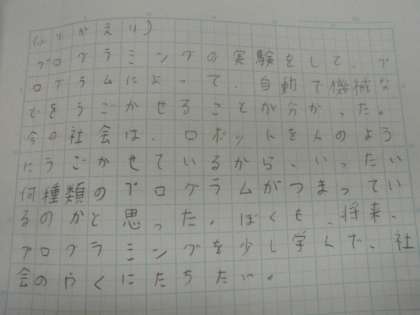 (ふりかえり)
プログラミングの実験をして、プ
ログラムによって、自動で機械な
どをうごかせることが分かった。
今の社会は、ロボットを人のよう
にうごかせているから、いったい
何種類のプログラムがつまってい
るのかと思った。ぼくも、将来、
プログラミングを少し学んで、社
会のやくにたちたい。